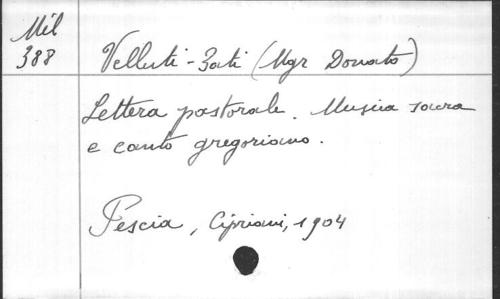 Mil
388
Velluti-Zati (Mgr Donato)
Lettera pastorale. Musica sacra
e canto gregoriano.
Pescia, Cipriani, 1904